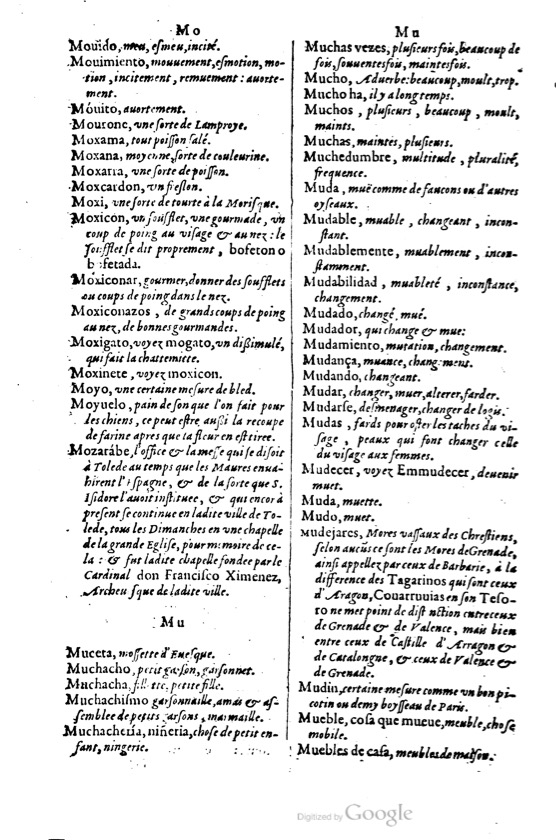 Mo
Mouido, meu, esmeu, incité.
Mouimiento, mouuement, esmotion, mo-
tion, incitement, remuement: auorte-
ment.
Móuito, auortement.
Mourone, vne sorte de Lamproye.
Moxama, tout poisson salé.
Moxana, moyenne sorte de couleurine.
Moxaria, vne sorte de poisson.
Moxcardon, vn freslon.
Moxi, vne sorte de tourte à la Morisque.
Moxicòn, vn soufflet, vne gourmade, vn
coup de poing au visage & au nez: le
soufflet se dit proprement, bofeton o
bofetada.
Moxiconar, gourmer, donner des soufflets
ou coups de poing dans le nez.
Moxiconazos, de grands coups de poing
au nez, de bonnes gourmandes.
Moxigato, voyez mogato, vn dißimulé,
qui fait la chattemiete.
Moxinete, voyez moxicon.
Moyo, vne certaine mesure de bled.
Moyuelo, pain de son que l'on fait pour
les chiens, ce peut estre außi la recoupe
de farine apres que la fleur en est tiree.
Mozarábe, l'office & la messe qui se disoit
à Tolede au temps que les Maures enua-
hirent l'Espagne, & de la sorte que S.
Isidore l'auoit instituee, & qui encor à
present se continue en ladite ville de To-
lede, tous les Dimanches en vne chapelle
de la grande Eglise, pour memoire de ce-
la: & fut ladite chapelle fondee par le
Cardinal don Francisco Ximenez,
Archeuesque de ladite ville.
Mu
Muceta, mossette d'Euesque.
Muchacho, petit garson, garsonnet.
Muchacha, fillette, petite fille.
Muchachismo garsonnaille, amas & as-
semblee de petits garsons, marmaille.
Muchacheria, niñeria, chose de petit en-
fant, ningerie.
Mu
Muchas vezes, plusieurs fois, beaucoup de
fois, souuentesfois, maintesfois.
Mucho, Aduerbe: beaucoup, moult, trop.
Mucho ha, il y a long temps.
Muchos, plusieurs, beaucoup, moult,
maints.
Muchas, maintes, plusieurs.
Muchedumbre, multitude, pluralité,
frequence.
Muda, muë comme de faucons ou d'autres
oyseaux.
Mudable, muable, changeant, incon-
stant.
Mudablemente, muablement, incon-
stamment.
Mudabilidad, muableté, inconstance,
changement.
Mudado, changé, mué.
Mudador, qui change & mue:
Mudamiento, mutation, changement.
Mudança, muance, changement.
Mudando, changeant.
Mudar, changer, muer, alterer, farder.
Mudarse, desmenager, changer de logis.
Mudas, fards pour oster les taches du vi-
sage, peaux qui font changer celle
du visage aux femmes.
Mudecer, voyez Emmudecer, deuenir
muet.
Muda, muette.
Mudo, muet.
Mudejares, Mores vassaux des Chrestiens,
selon aucuns ce sont les Mores de Grenade,
ainsi appellez par ceux de Barbarie, à la
difference des Tagarinos qui sont ceux
d'Aragon, Couarruuias en son Teso-
ro ne met point de distinction entre ceux
de Grenade & de Valence, mais bien
entre ceux de Castille d'Arragon &
de Catalongne, & ceux de Valence &
de Grenade.
Mudin, certaine mesure comme vn bon pi-
cotin ou demy boysseau de Paris.
Mueble, cosa que mueue, meuble, chose
mobile.
Muebles de casa, meubles de maison.
Digitized by Google